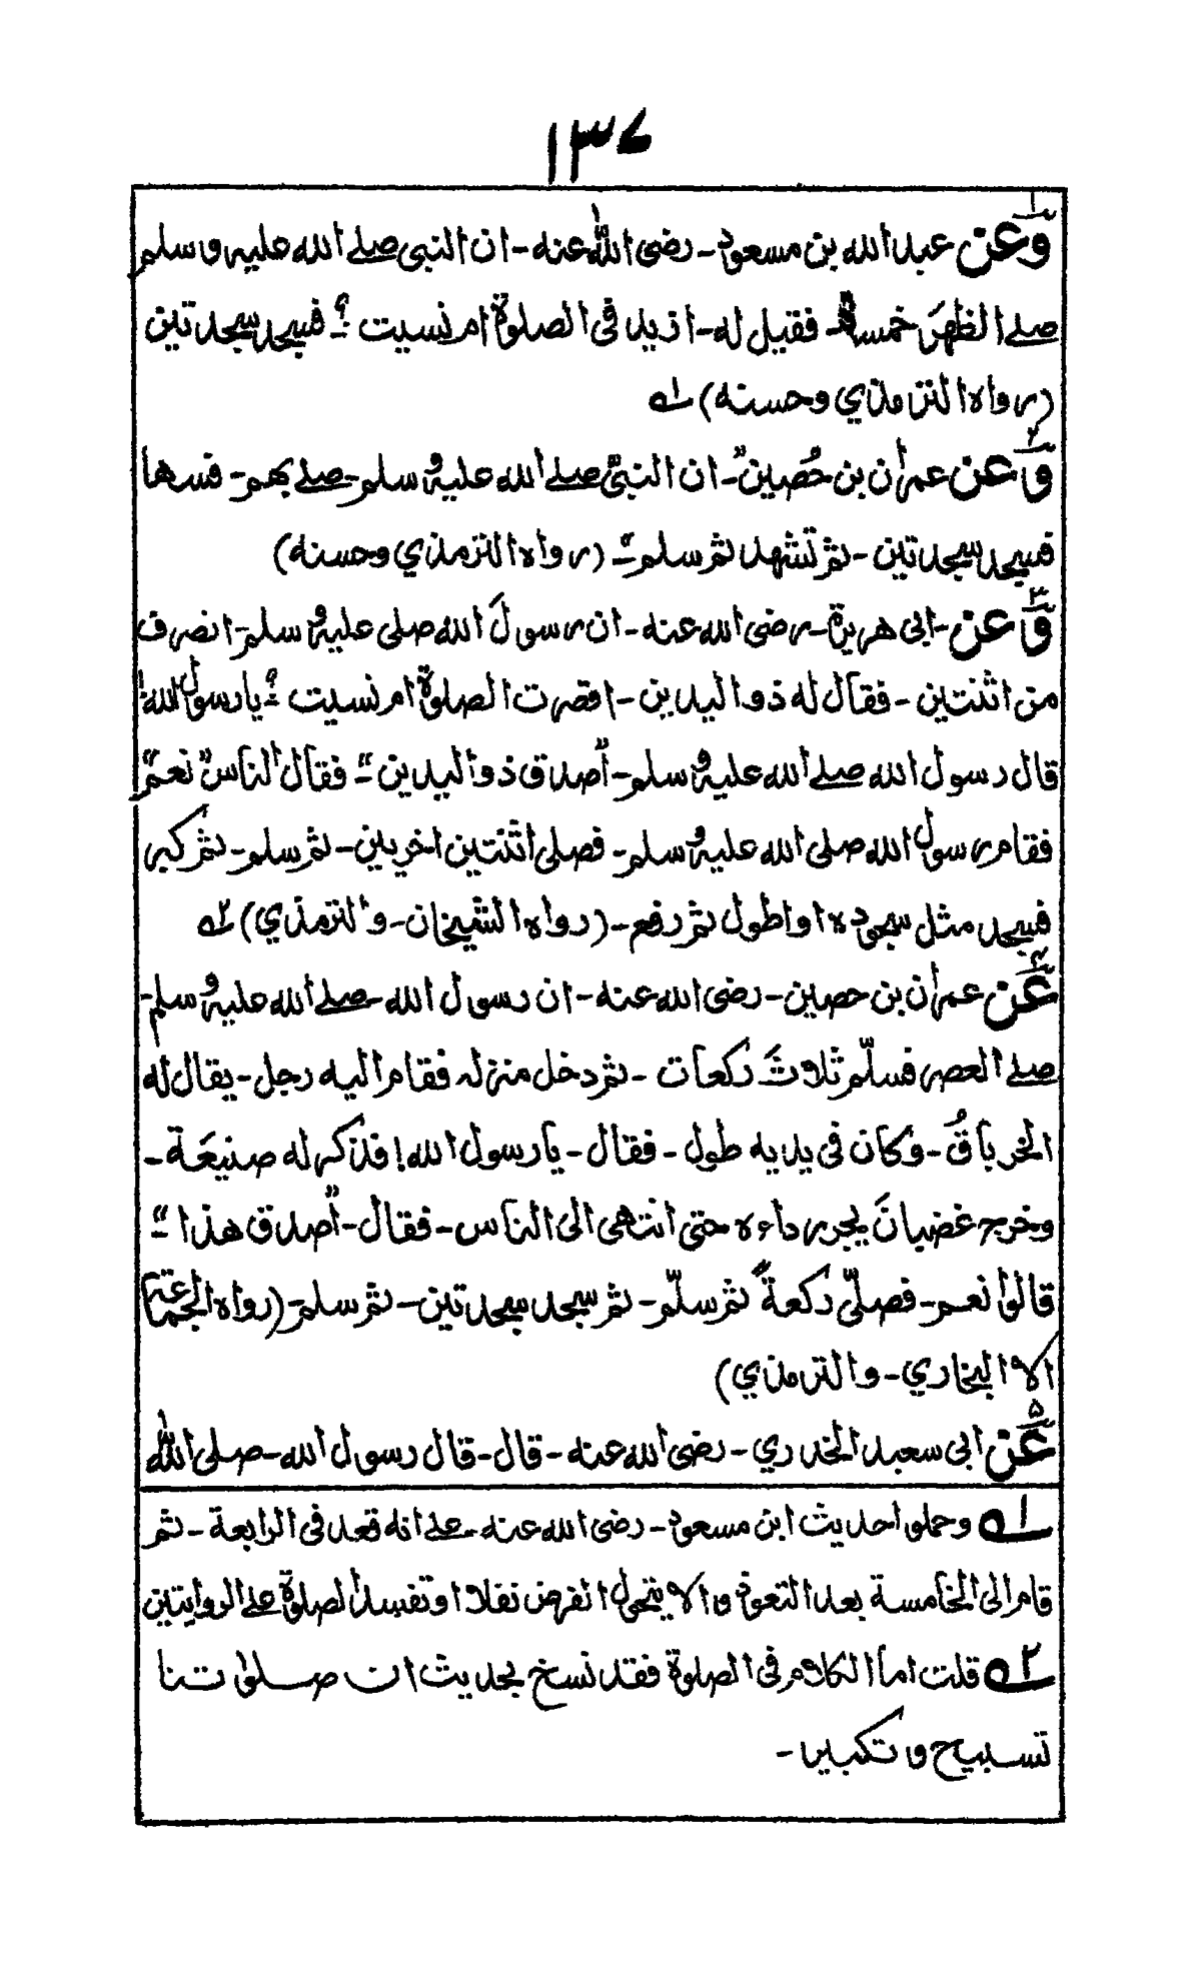 ١٣٤
١ وعن عبد الله بن مسعود - رضى الله عنه - ان النبى صلے الله عليه وسلم
صلے الظهرَ خمسة - فقيل له - ازيد فى الصلوة ام نسيت ؟ - فسجد سجدتين
(رواه الترمذي وحسنه) ١ه
٢ وعن عمران بن حُصين - ان النبىّ صلے الله عليه وسلم - صلے بهم - فسها
فسجد سجدتين - ثم تشهد ثم سلم - (رواه الترمذي وحسنه)
٣ وعن - ابى هريرة - رضى الله عنه - ان رسولَ الله صلى عليه وسلم - انصرف
من اثنتين - فقال له ذو اليدين - اقصرت الصلوة ام نسيت ؟ - يا رسول الله!
قال رسول الله صلے الله عليه وسلم - "أصدق ذو اليدين" - فقال الناس "نعم"
فقام رسول الله صلى الله عليه وسلم - فصلى اثنتين اخريين - ثم سلم - ثم كبر
فسجد مثل سجوده او اطول ثم رفع - (رواه الشيخان - والترمذي) ٢ه
٤ عن عمران بن حصين - رضى الله عنه - ان رسول الله - صلے الله عليه وسلم -
صلے العصر فسلّم ثلاثَ ركعات - ثم دخل منزله فقام اليه رجل - يقال له
الخرباقُ - وكان فى يديه طول - فقال - يا رسول الله! فذكر له صنيعَة -
وخرج غضبانَ يجر رداءه حتى انتهى الى الناس - فقال - "أصدق هذا" -
قالوا نعم - فصلّى ركعةً ثم سلّم - ثم سجد سجدتين - ثم سلم - (رواه الجماعة
الا البخاري - والترمذي)
٥ عن ابى سعيد الخدري - رضى الله عنه - قال - قال رسول الله - صلى الله
١ه وحملوا حديث ابن مسعود - رضى الله عنه - علے انه قعد فى الرابعة - ثم
قام الى الخامسة بعد التعوذ والا يتحول الفرض نفلا او تفسد الصلوة علے الروايتين
٢ه قلت اما الكلام فى الصلوة فقد نسخ بحديث ان صلوٰتنا
تسبيح وتكبير -